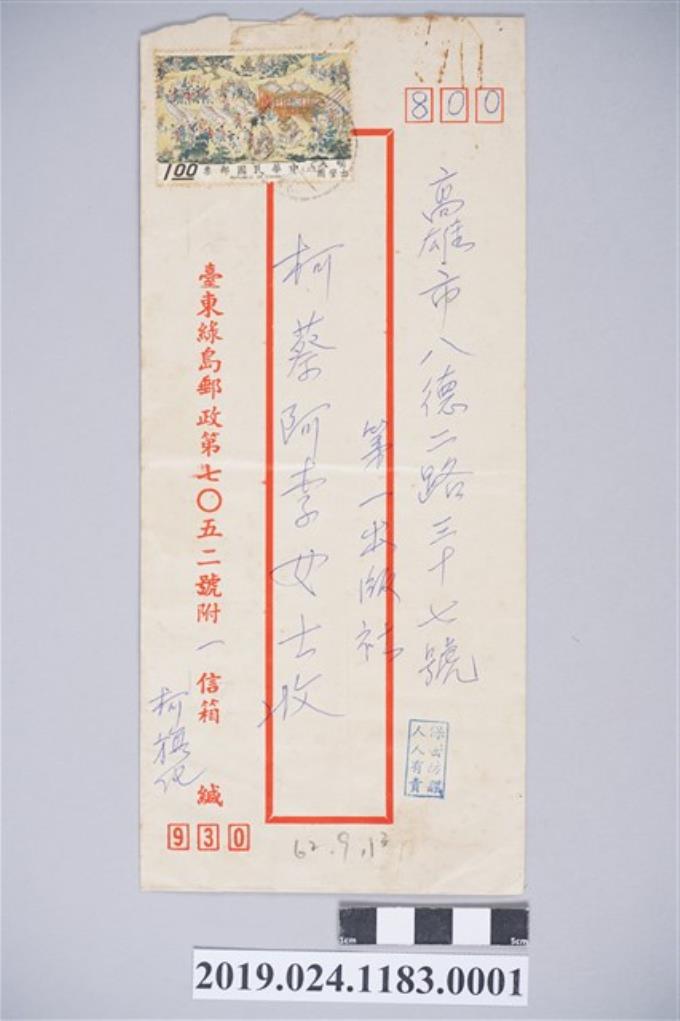 800
高雄市八德二路三十七號
第一出版社
柯蔡阿李女士收
臺東綠島郵政第七〇五二號附一信箱 緘
柯旗化
930
62.9.13
保密防諜
人人有責
中華民國郵票
1.00
2019.024.1183.0001
1cm
5cm